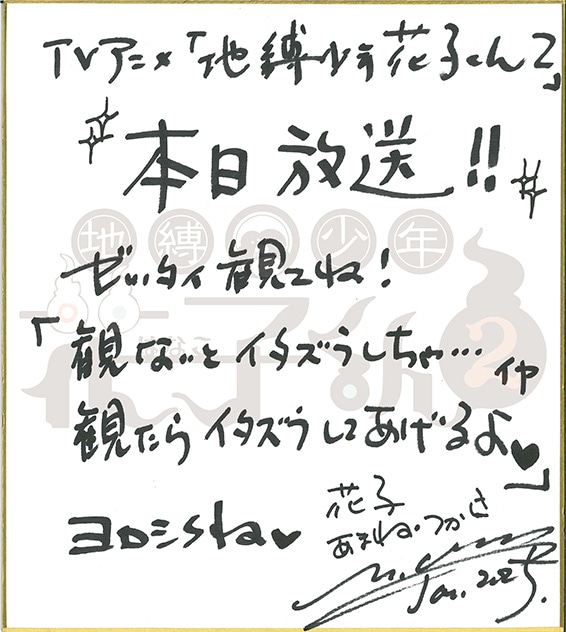 TVアニメ「地縛少年花子くん2」
本日放送!!
地縛少年
花子くん2
はなこ
ゼッタイ観てね!
「観ないとイタズラしちゃ…イヤ
観たらイタズラしてあげるよ♥」
ヨロシSね♥
花子
あまね・つかさ
Jan. 2025.